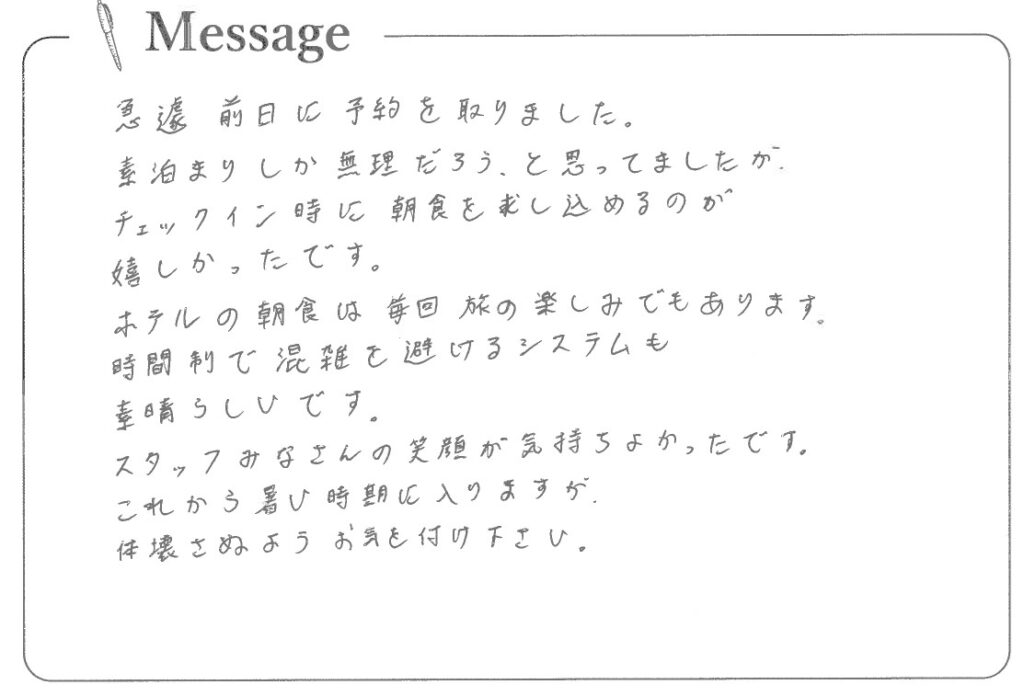 Message
急遽 前日に予約を取りました。
素泊まりしか無理だろう、と思ってましたが、
チェックイン時に朝食を求し込めるのが
嬉しかったです。
ホテルの朝食は毎回 旅の楽しみでもあります。
時間制で混雑を避けるシステムも
素晴らしいです。
スタッフみなさんの笑顔が気持ちよかったです。
これから暑い時期に入りますが、
体壊さぬようお気を付け下さい。